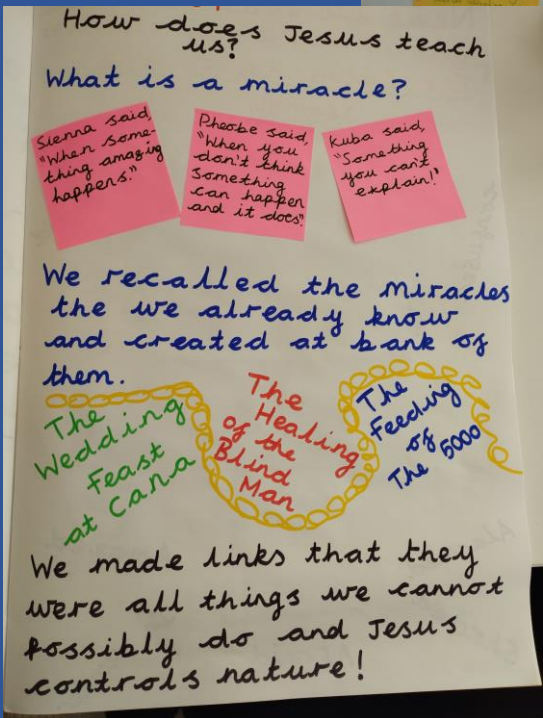 How does Jesus teach
us?
What is a miracle?
Sienna said,
"When some-
thing amazing
happens."
Pheobe said,
"When you
don't think
something
can happen
and it does".
Kuba said,
"Something
you can't
explain!"
We recalled the miracles
the we already know
and created at bank of
them.
The
Wedding
Feast
at Cana
The
Healing
of the
Blind
Man
The
Feeding
of
The 5000
We made links that they
were all things we cannot
possibly do and Jesus
controls nature!